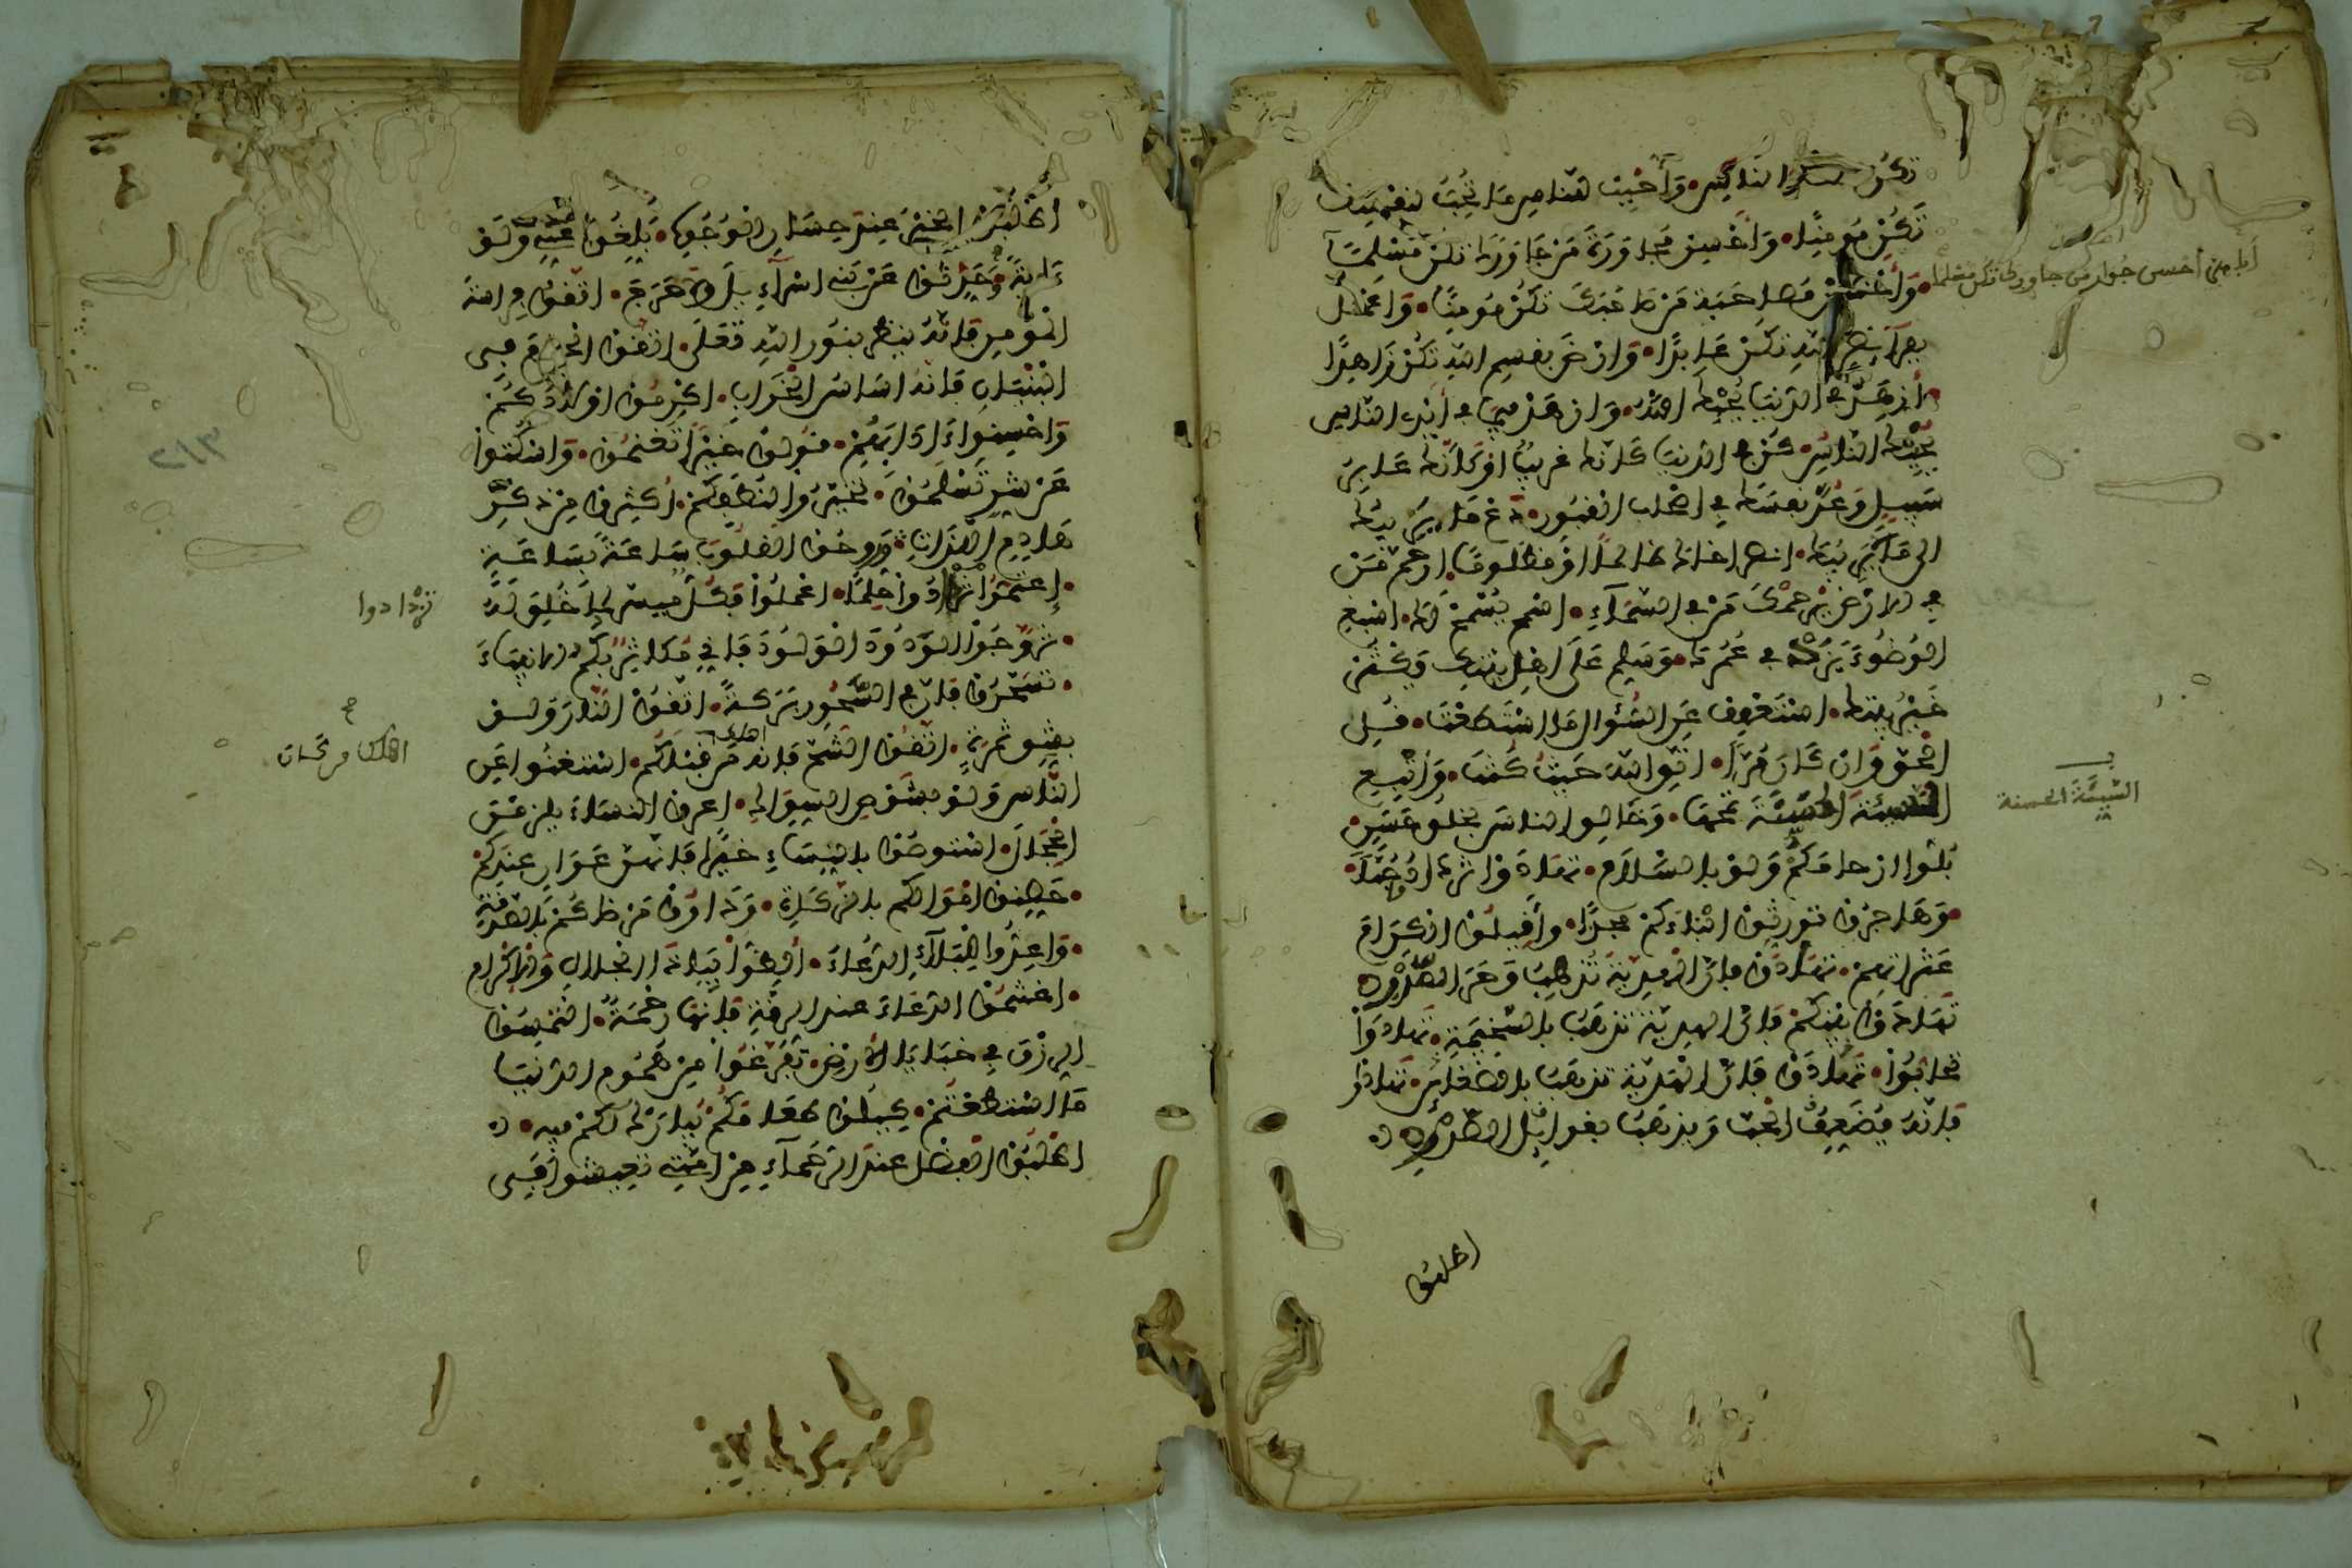 تكن اشكر الناس وأحبب للناس ما تحب لنفسك
تكن مومنا وأحسن مجاورة من جاورك تكن مسلما
وأحسن مصاحبة من صاحبك تكن مومنا واعمل
بفرائض الله تكن عابدا وارض بقسم الله تكن زاهدا
ازهد في الدنيا يحبك الله وازهد فيما في أيدي الناس
يحبك الناس كن في الدنيا كانك غريب او كانك عابر
سبيل وعد نفسك في اصحاب القبور دع ما يريبك
الى ما لا يريبك انصر اخاك ظالما او مظلوما ارحم من
في الارض يرحمك من في السماء اسمح يسمح لك اسبغ
الوضوء يزد في عمرك وسلم على اهل بيتك يكثر
خير بيتك استعفف عن السؤال ما استطعت قل
الحق وان كان مرا اتق الله حيث كنت واتبع
السيئة الحسنة تمحها وخالق الناس بخلق حسن
بلوا ارحامكم ولو بالسلام تهادوا تزدادوا حبا
وهاجروا تورثوا ابناءكم مجدا وأقيلوا الكرام
عثراتهم تهادوا فان الهدية تذهب وحر الصدر
تهادوا بينكم فان الهدية تذهب بالسخيمة تهادوا
تحابوا تهادوا فان الهدية تذهب بالضغائن تهادوا
فانه يضعف الحب ويذهب بغوائل الصدر
اطلبوا
السيئة الحسنة
اطلبوا الخير عند حسان الوجوه بلغوا عني ولو
ءاية وحدثوا عن بني اسراءيل ولا حرج اتقوا فراسة
المومن فانه ينظر بنور الله تعلى اتقوا الحرام في
البنيان فانه اساس الخراب اكرموا اولادكم
واحسنوا ءادابهم قولوا خيرا تغنموا واسكتوا
عن شر تسلموا تخيروا لنطفكم اكثروا من ذكر
هادم اللذات وروحوا القلوب ساعة بساعة
اعتموا تزدادوا حلما اعملوا فكل ميسر لما خلق له
تزوجوا الودود الولود فاني مكاثر بكم الانبياء
تسحروا فان في السحور بركة اتقوا النار ولو
بشق تمرة اتقوا الشح فانه اهلك من قبلكم استغنوا عن
الناس ولو بشوص السواك اعروا النساء يلزمن
الحجال استوصوا بالنساء خيرا فانهن عوان عندكم
حصنوا اموالكم بالزكاة وداووا مرضاكم بالصدقة
واعدوا للبلاء الدعاء ألظوا بياذا الجلال والاكرام
اغتنموا الدعاء عند الرقة فانها رحمة التمسوا
الرزق في خبايا الارض تفرغوا من هموم الدنيا
ما استطعتم كيلوا طعامكم يبارك لكم فيه
اطلبوا الفضل عند الرحماء من امتي تعيشوا في
تزدادوا